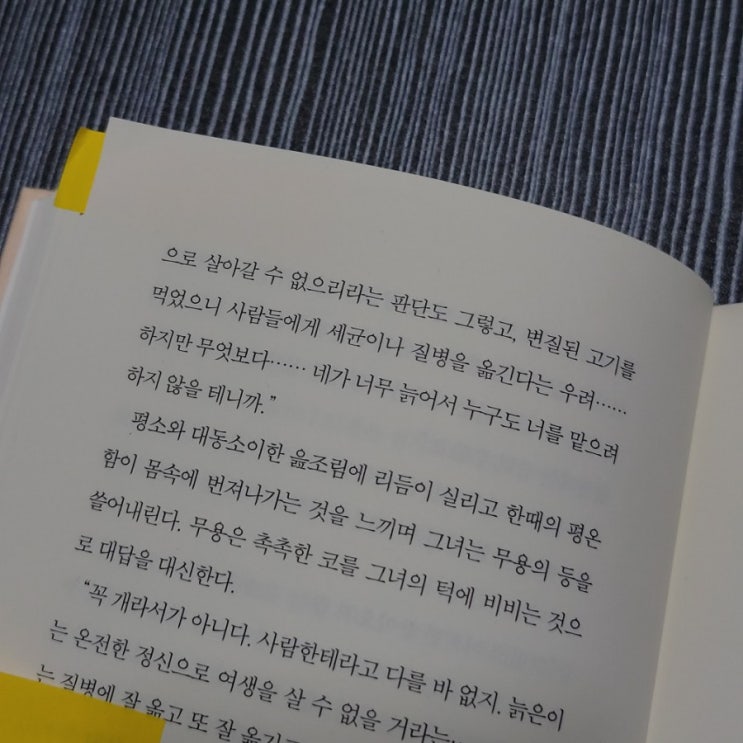 으로 살아갈 수 없으리라는 판단도 그렇고, 변질된 고기를
먹었으니 사람들에게 세균이나 질병을 옮긴다는 우려……
하지만 무엇보다…… 네가 너무 늙어서 누구도 너를 맡으려
하지 않을 테니까.”
평소와 대동소이한 읊조림에 리듬이 실리고 한때의 평온
함이 몸속에 번져나가는 것을 느끼며 그녀는 무용의 등을
쓸어내린다. 무용은 촉촉한 코를 그녀의 턱에 비비는 것으
로 대답을 대신한다.
“꼭 개라서가 아니다. 사람한테라고 다를 바 없지. 늙은이
는 온전한 정신으로 여생을 살 수 없을 거라는
는 질병에 잘 옮고 또 잘